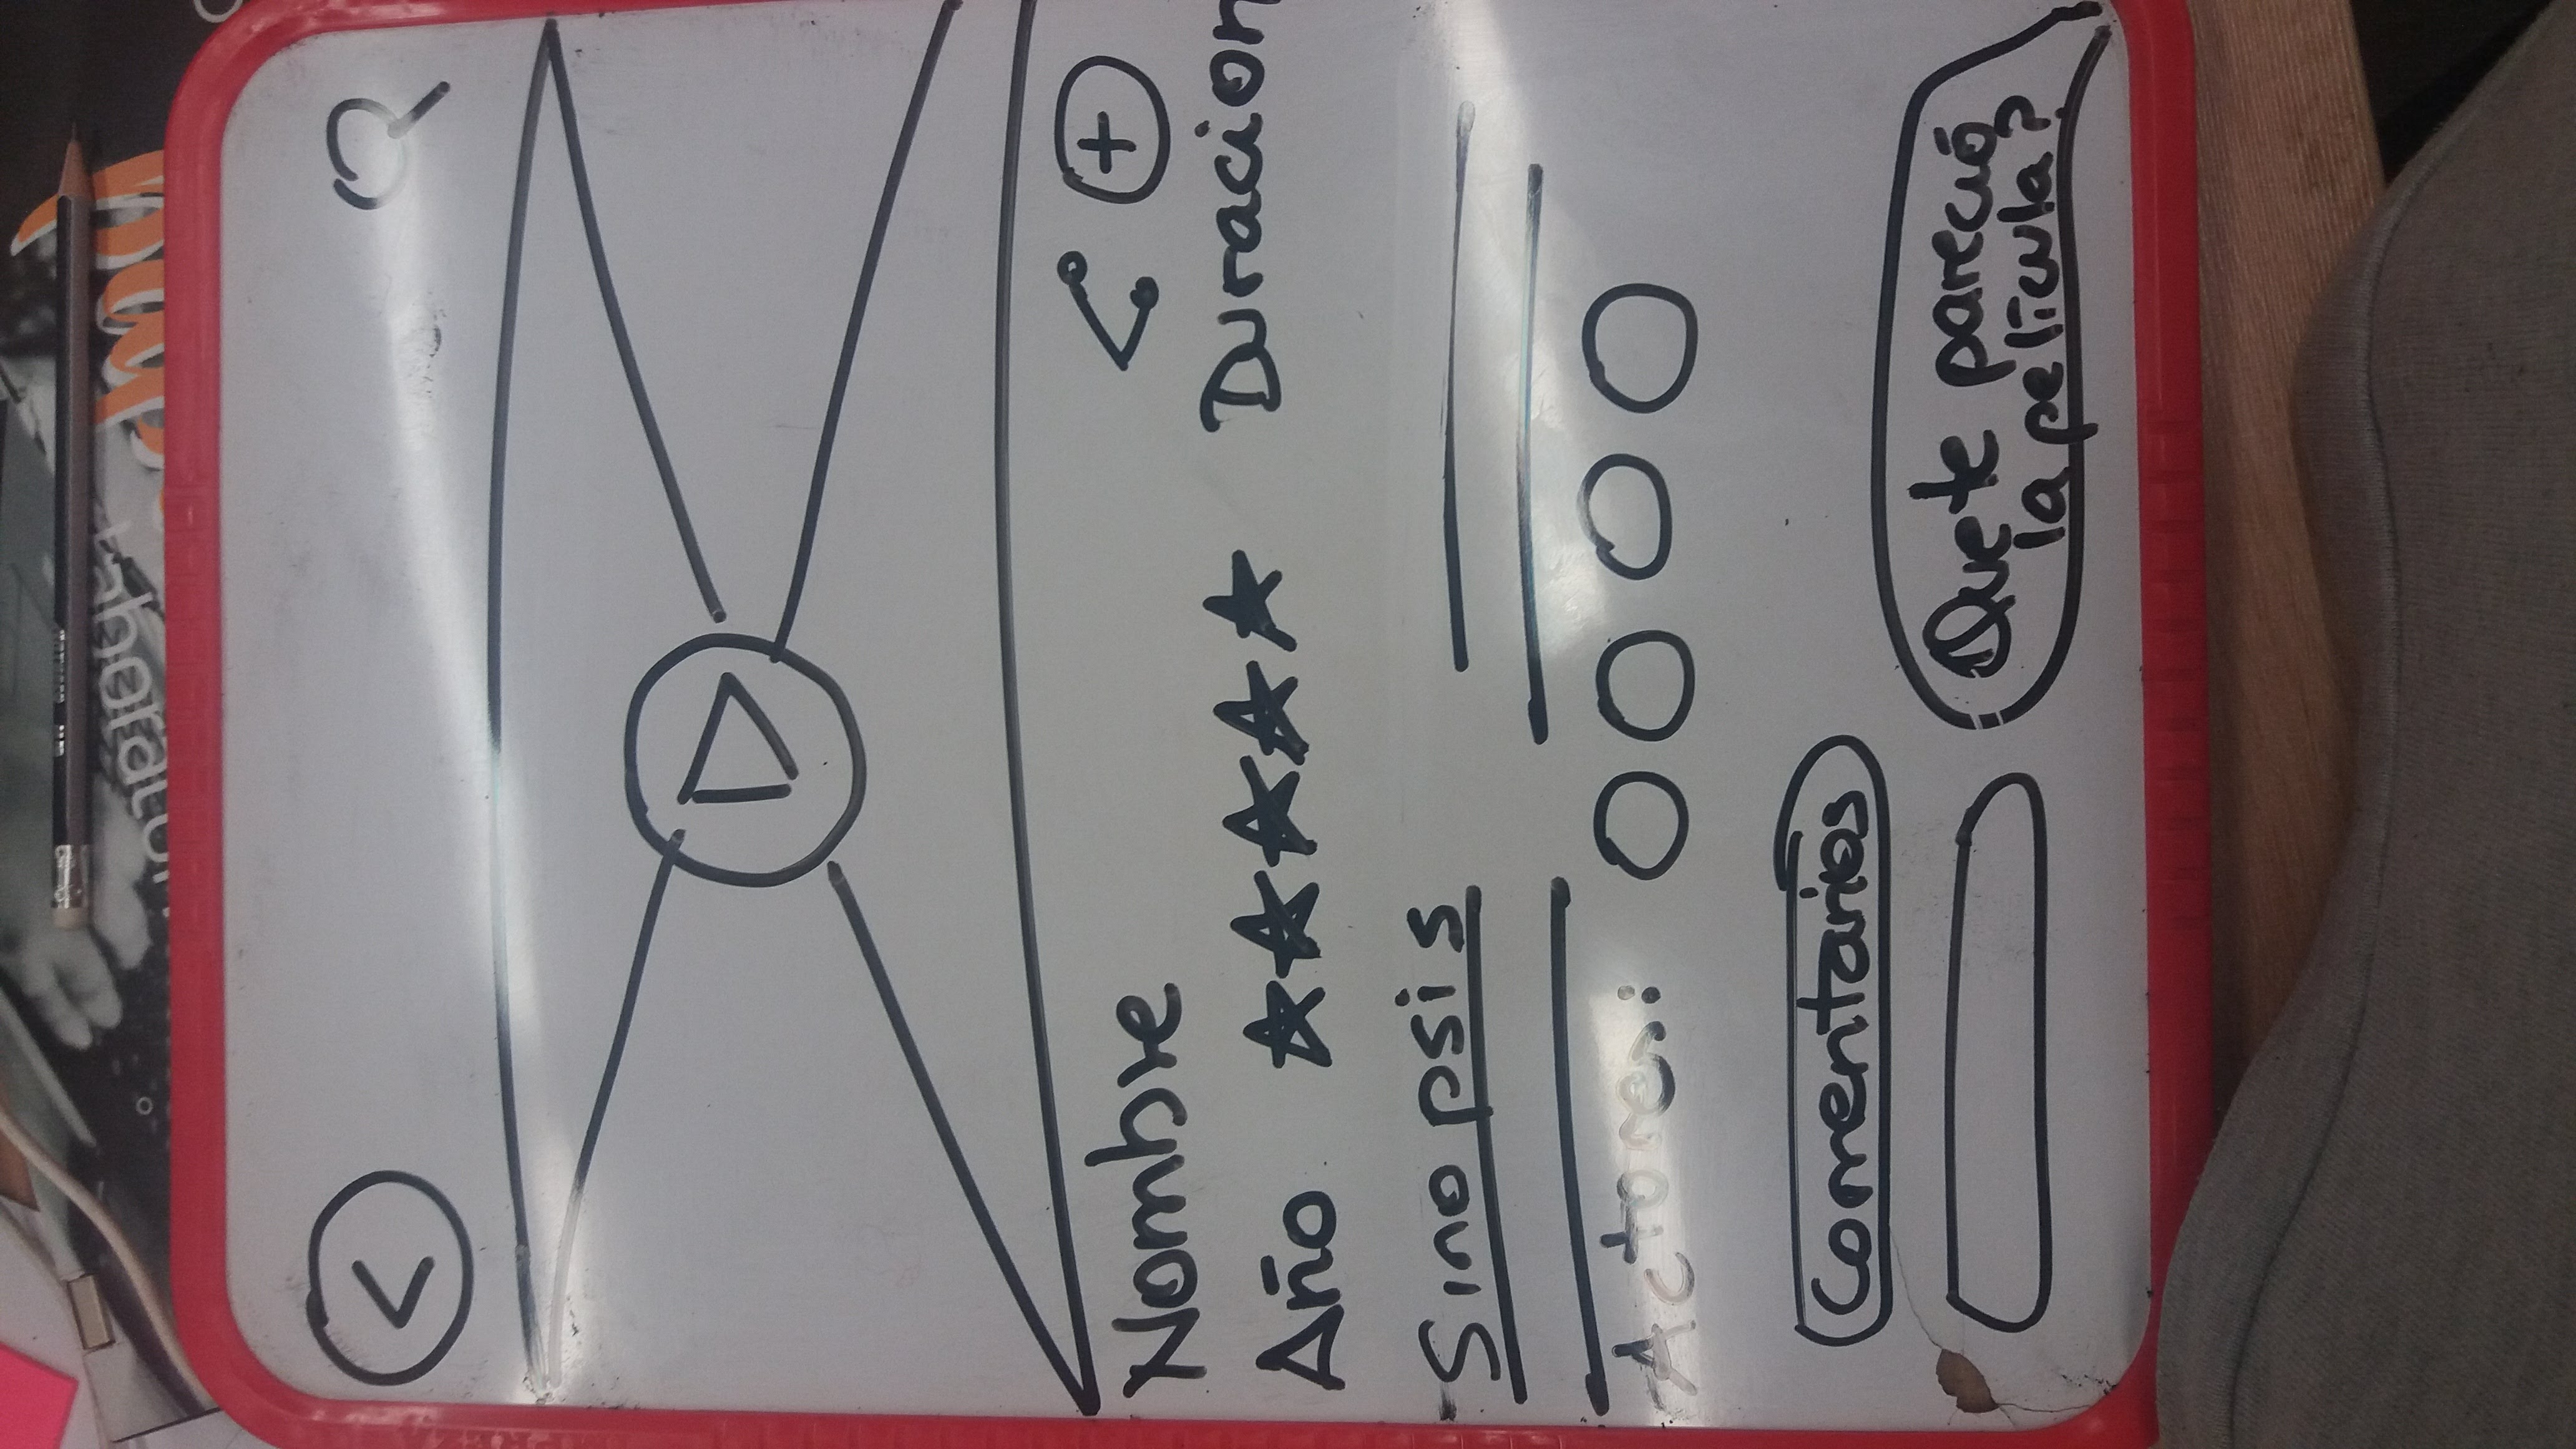 <
Nombre
+
Año
Duracion
Sinopsis
Actores:
Comentarios
Que te pareció
la película?